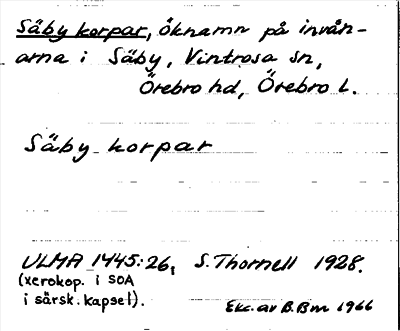 Säby korpar, öknamn på invån-
arna i Säby, Vintrosa sn,
Örebro hd, Örebro l.
Säby korpar
ULMA 1445:26, S. Thornell 1928.
(xerokop. i SOA
i särsk. kapsel).
Exc. av B. Bm 1966